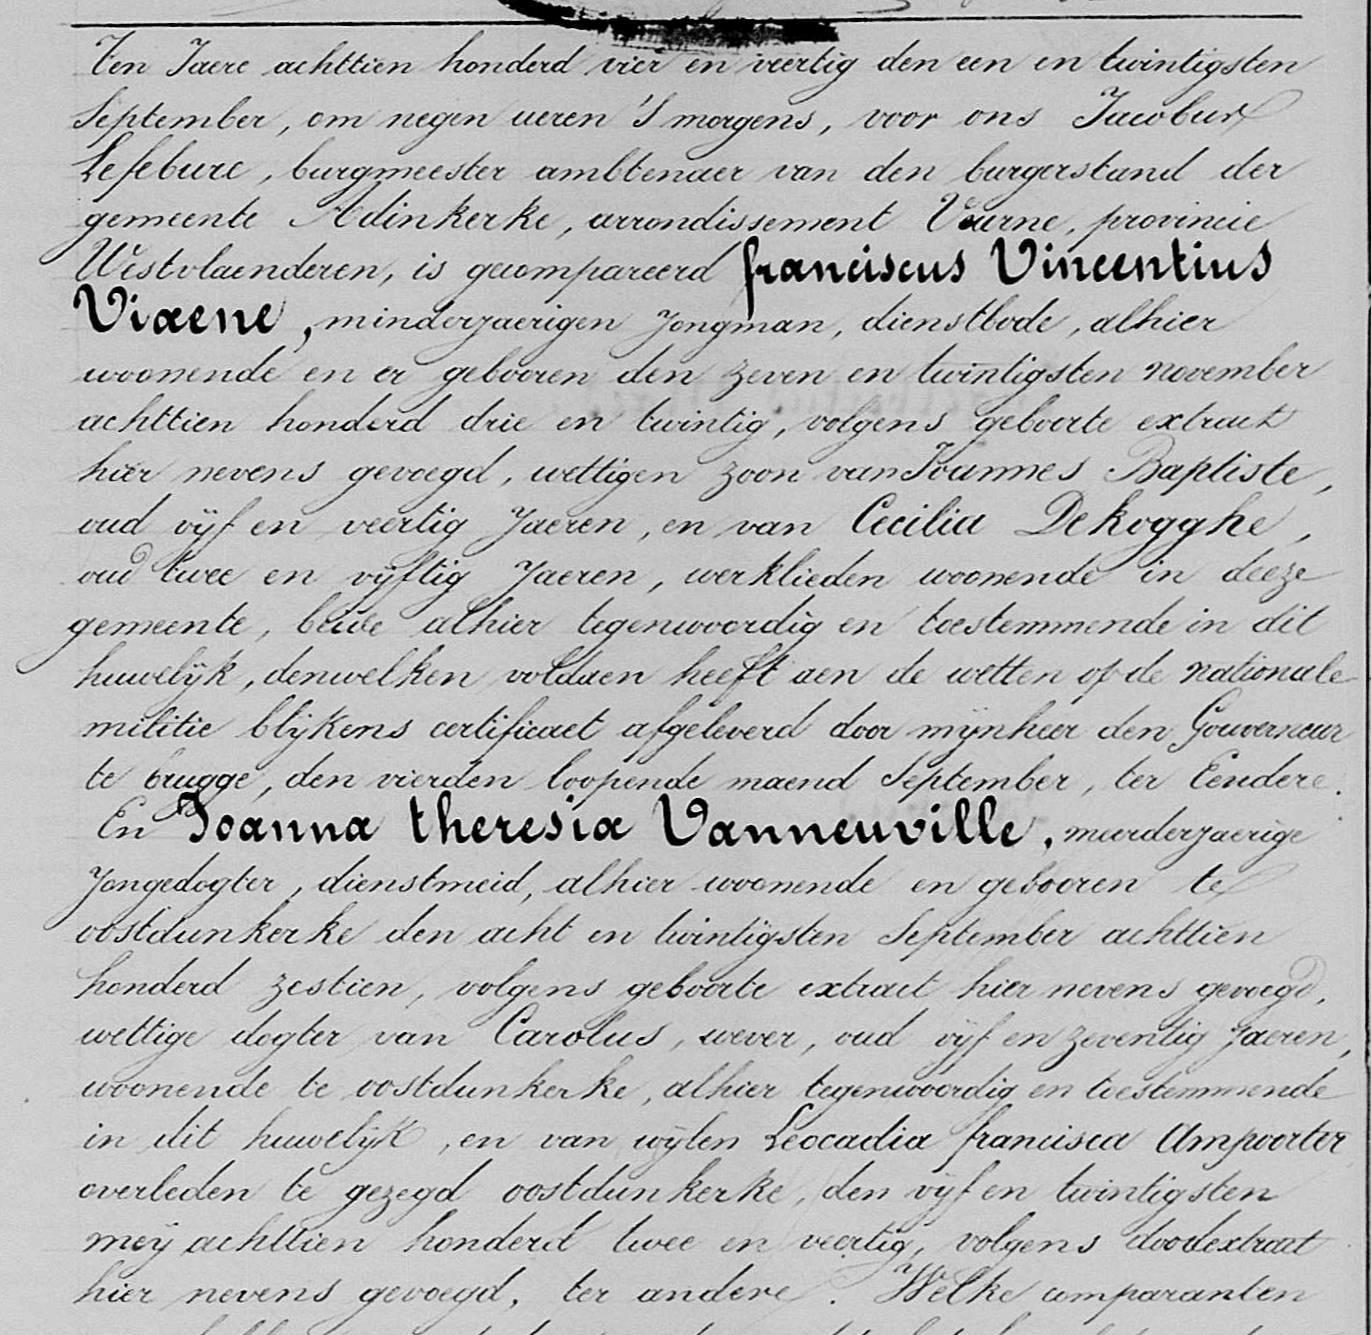 Ten Jaere achttien honderd vier en veertig den een en twintigsten
September, om negen ueren 's morgens, voor ons Jacobus
Lefebure, burgmeester ambtenaer van den burgerstand der
gemeente Adinkerke, arrondissement Veurne, provincie
Westvlaenderen, is gecompareerd franciscus Vincentius
Viaene, minderjaerigen Jongman, dienstbode, alhier
woonende en er gebooren den zeven en twintigsten november
achttien honderd drie en twintig, volgens geboorte extract
hier nevens gevoegd, wettigen zoon van Joannes Baptiste,
oud vyf en veertig Jaeren, en van Cecilia Dekogghe,
oud twee en vyftig Jaeren, werklieden woonende in deeze
gemeente, beide alhier tegenwoordig en toestemmende in dit
huwelyk, denwelken voldaen heeft aen de wetten op de nationale
militie blykens certificaet afgeleverd door mynheer den Gouverneur
te brugge, den vierden loopende maend September, ter Eendere.
En Joanna theresia Vanneuville, meerderjaerige
Jongedogter, dienstmeid, alhier woonende en gebooren te
oostdunkerke den acht en twintigsten September achttien
honderd zestien, volgens geboorte extract hier nevens gevoegd,
wettige dogter van Carolus, wever, oud vyf en zeventig Jaeren,
woonende te oostdunkerke, alhier tegenwoordig en toestemmende
in dit huwelyk, en van wylen Leocadia francisca Ampoorter
overleden te gezegd oostdunkerke, den vyf en twintigsten
mey achttien honderd twee en veertig, volgens doodextract
hier nevens gevoegd, ter andere. Welke comparanten